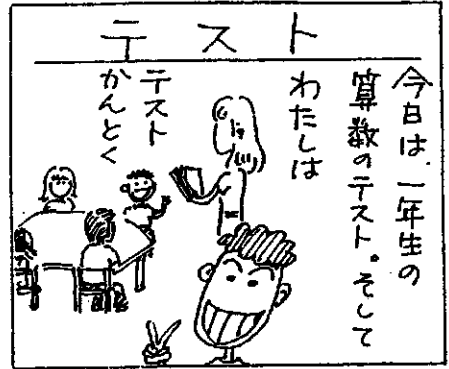 テスト
今日は、一年生の
算数のテスト。そして
わたしは
テスト
かんとく